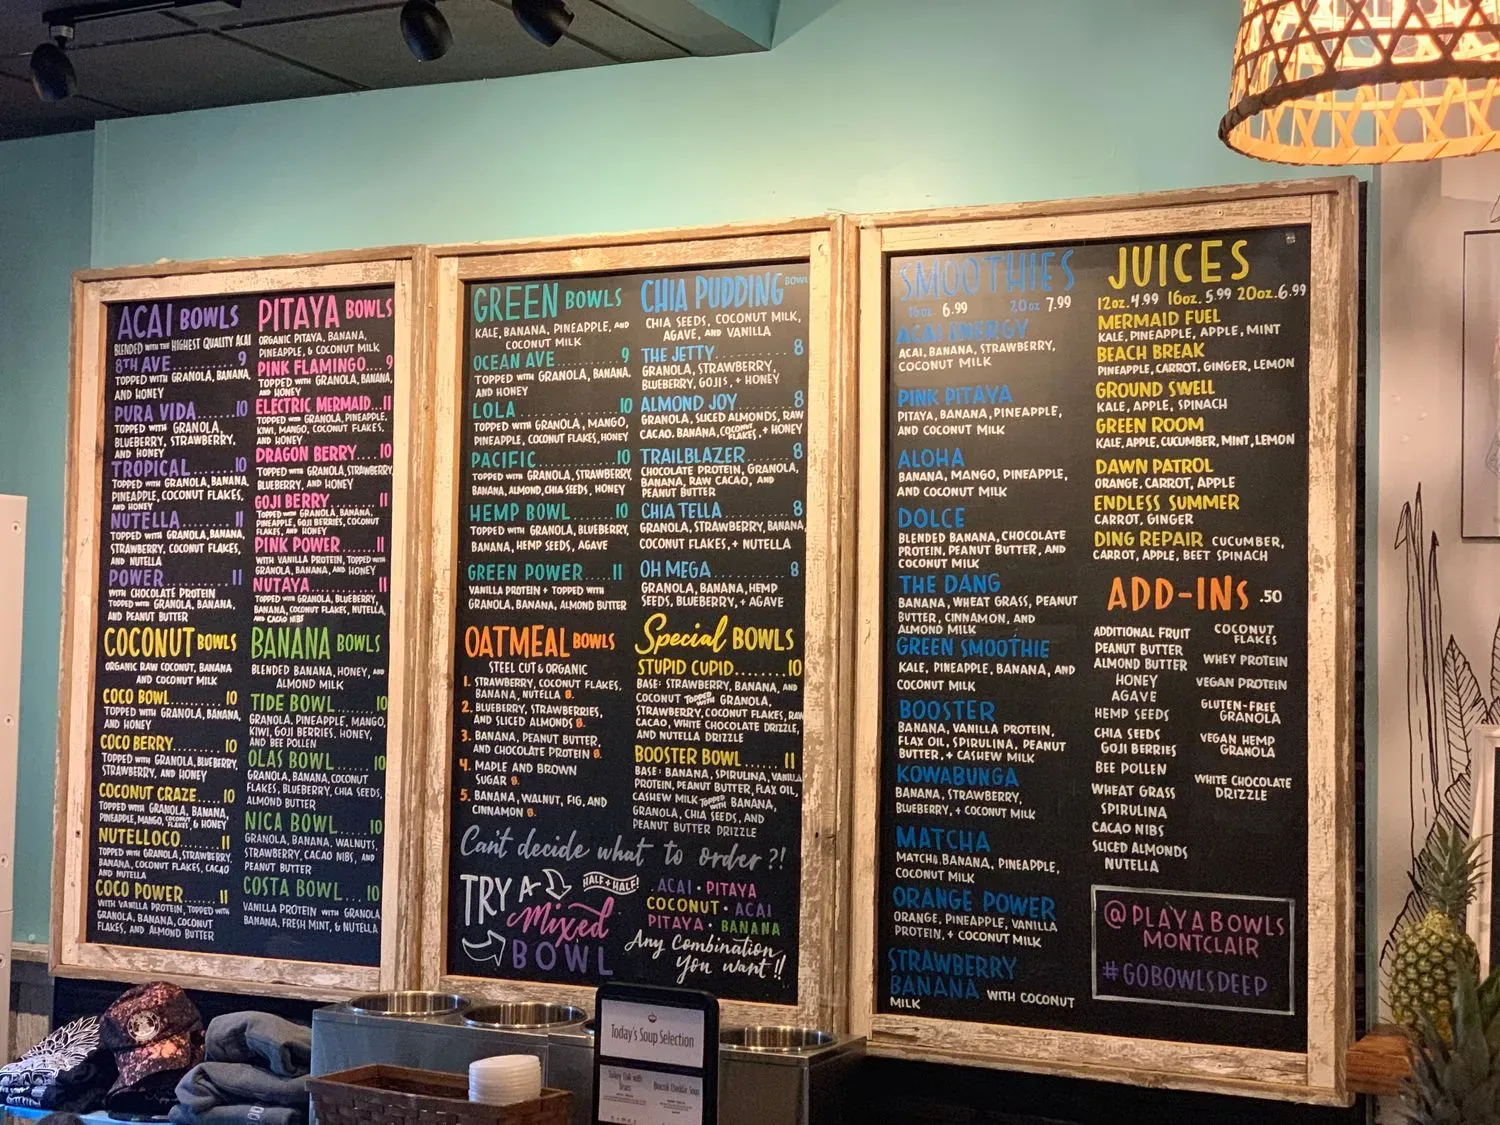 ACAI BOWLS
BLENDED WITH THE HIGHEST QUALITY ACAI
8TH AVE.........9
TOPPED WITH GRANOLA, BANANA,
AND HONEY
PURA VIDA......10
TOPPED WITH GRANOLA,
BLUEBERRY, STRAWBERRY,
AND HONEY
TROPICAL.......10
TOPPED WITH GRANOLA, BANANA,
PINEAPPLE, COCONUT FLAKES,
AND HONEY
NUTELLA........11
TOPPED WITH GRANOLA, BANANA,
STRAWBERRY, COCONUT FLAKES,
AND NUTELLA
POWER..........11
WITH CHOCOLATE PROTEIN
TOPPED WITH GRANOLA, BANANA,
AND PEANUT BUTTER
COCONUT BOWLS
ORGANIC RAW COCONUT, BANANA
AND COCONUT MILK
COCO BOWL......10
TOPPED WITH GRANOLA, BANANA,
AND HONEY
COCO BERRY.....10
TOPPED WITH GRANOLA, BLUEBERRY,
STRAWBERRY, AND HONEY
COCONUT CRAZE.....10
TOPPED WITH GRANOLA, BANANA,
PINEAPPLE, MANGO, COCONUT FLAKES, & HONEY
NUTELLOCO......11
TOPPED WITH GRANOLA, STRAWBERRY,
BANANA, COCONUT FLAKES, CACAO
AND NUTELLA
COCO POWER.....11
WITH VANILLA PROTEIN, TOPPED WITH
GRANOLA, BANANA, COCONUT
FLAKES, AND ALMOND BUTTER
PITAYA BOWLS
ORGANIC PITAYA, BANANA,
PINEAPPLE, & COCONUT MILK
PINK FLAMINGO...9
TOPPED WITH GRANOLA, BANANA,
AND HONEY
ELECTRIC MERMAID...11
TOPPED WITH GRANOLA, PINEAPPLE,
KIWI, MANGO, COCONUT FLAKES,
AND HONEY
DRAGON BERRY....10
TOPPED WITH GRANOLA, STRAWBERRY,
BLUEBERRY, AND HONEY
GOJI BERRY......11
TOPPED WITH GRANOLA, BANANA,
PINEAPPLE, GOJI BERRIES, COCONUT
FLAKES, AND HONEY
PINK POWER......11
WITH VANILLA PROTEIN, TOPPED WITH
GRANOLA, BANANA, AND HONEY
NUTAYA..........11
TOPPED WITH GRANOLA, BLUEBERRY,
BANANA, COCONUT FLAKES, NUTELLA,
AND CACAO NIBS
BANANA BOWLS
BLENDED BANANA, HONEY, AND
ALMOND MILK
TIDE BOWL......10
GRANOLA, PINEAPPLE, MANGO,
KIWI, GOJI BERRIES, HONEY,
AND BEE POLLEN
OLAS BOWL......10
GRANOLA, BANANA, COCONUT
FLAKES, BLUEBERRY, CHIA SEEDS,
ALMOND BUTTER
NICA BOWL......10
GRANOLA, BANANA, WALNUTS,
STRAWBERRY, CACAO NIBS, AND
PEANUT BUTTER
COSTA BOWL.....10
VANILLA PROTEIN WITH GRANOLA,
BANANA, FRESH MINT, & NUTELLA
GREEN BOWLS
KALE, BANANA, PINEAPPLE, AND
COCONUT MILK
OCEAN AVE..........9
TOPPED WITH GRANOLA, BANANA,
AND HONEY
LOLA...............10
TOPPED WITH GRANOLA, MANGO,
PINEAPPLE, COCONUT FLAKES, HONEY
PACIFIC............10
TOPPED WITH GRANOLA, STRAWBERRY,
BANANA, ALMOND, CHIA SEEDS, HONEY
HEMP BOWL..........10
TOPPED WITH GRANOLA, BLUEBERRY,
BANANA, HEMP SEEDS, AGAVE
GREEN POWER........11
VANILLA PROTEIN + TOPPED WITH
GRANOLA, BANANA, ALMOND BUTTER
OATMEAL BOWLS
STEEL CUT & ORGANIC
1. STRAWBERRY, COCONUT FLAKES,
BANANA, NUTELLA 8.
2. BLUEBERRY, STRAWBERRIES,
AND SLICED ALMONDS 8.
3. BANANA, PEANUT BUTTER,
AND CHOCOLATE PROTEIN 8.
4. MAPLE AND BROWN
SUGAR 8.
5. BANANA, WALNUT, FIG, AND
CINNAMON 8.
CHIA PUDDING BOWL
CHIA SEEDS, COCONUT MILK,
AGAVE, AND VANILLA
THE JETTY..........8
GRANOLA, STRAWBERRY,
BLUEBERRY, GOJIS, + HONEY
ALMOND JOY.........8
GRANOLA, SLICED ALMONDS, RAW
CACAO, BANANA, COCONUT FLAKES, + HONEY
TRAILBLAZER........8
CHOCOLATE PROTEIN, GRANOLA,
BANANA, RAW CACAO, AND
PEANUT BUTTER
CHIA TELLA.........8
GRANOLA, STRAWBERRY, BANANA,
COCONUT FLAKES, + NUTELLA
OH MEGA............8
GRANOLA, BANANA, HEMP
SEEDS, BLUEBERRY, + AGAVE
Special BOWLS
STUPID CUPID.......10
BASE: STRAWBERRY, BANANA, AND
COCONUT TOPPED WITH GRANOLA,
STRAWBERRY, COCONUT FLAKES, RAW
CACAO, WHITE CHOCOLATE DRIZZLE,
AND NUTELLA DRIZZLE
BOOSTER BOWL.....11
BASE: BANANA, SPIRULINA, VANILLA
PROTEIN, PEANUT BUTTER, FLAX OIL,
CASHEW MILK TOPPED WITH BANANA,
GRANOLA, CHIA SEEDS, AND
PEANUT BUTTER DRIZZLE
Can't decide what to order?!
TRY A
HALF + HALF!
Mixed
BOWL
ACAI • PITAYA
COCONUT • ACAI
PITAYA • BANANA
Any Combination
You want!!
SMOOTHIES
16oz. 6.99 20oz 7.99
ACAI ENERGY
ACAI, BANANA, STRAWBERRY,
COCONUT MILK
PINK PITAYA
PITAYA, BANANA, PINEAPPLE,
AND COCONUT MILK
ALOHA
BANANA, MANGO, PINEAPPLE,
AND COCONUT MILK
DOLCE
BLENDED BANANA, CHOCOLATE
PROTEIN, PEANUT BUTTER, AND
COCONUT MILK
THE DANG
BANANA, WHEAT GRASS, PEANUT
BUTTER, CINNAMON, AND
ALMOND MILK
GREEN SMOOTHIE
KALE, PINEAPPLE, BANANA, AND
COCONUT MILK
BOOSTER
BANANA, VANILLA PROTEIN,
FLAX OIL, SPIRULINA, PEANUT
BUTTER, + CASHEW MILK
KOWABUNGA
BANANA, STRAWBERRY,
BLUEBERRY, + COCONUT MILK
MATCHA
MATCHA, BANANA, PINEAPPLE,
COCONUT MILK
ORANGE POWER
ORANGE, PINEAPPLE, VANILLA
PROTEIN, + COCONUT MILK
STRAWBERRY
BANANA WITH COCONUT
MILK
JUICES
12oz. 4.99 16oz. 5.99 20oz. 6.99
MERMAID FUEL
KALE, PINEAPPLE, APPLE, MINT
BEACH BREAK
PINEAPPLE, CARROT, GINGER, LEMON
GROUND SWELL
KALE, APPLE, SPINACH
GREEN ROOM
KALE, APPLE, CUCUMBER, MINT, LEMON
DAWN PATROL
ORANGE, CARROT, APPLE
ENDLESS SUMMER
CARROT, GINGER
DING REPAIR CUCUMBER,
CARROT, APPLE, BEET SPINACH
ADD-INS .50
ADDITIONAL FRUIT
PEANUT BUTTER
ALMOND BUTTER
HONEY
AGAVE
HEMP SEEDS
CHIA SEEDS
GOJI BERRIES
BEE POLLEN
WHEAT GRASS
SPIRULINA
CACAO NIBS
SLICED ALMONDS
NUTELLA
COCONUT
FLAKES
WHEY PROTEIN
VEGAN PROTEIN
GLUTEN-FREE
GRANOLA
VEGAN HEMP
GRANOLA
WHITE CHOCOLATE
DRIZZLE
@PLAYABOWLS
MONTCLAIR
#GOBOWLSDEEP
Today's Soup Selection